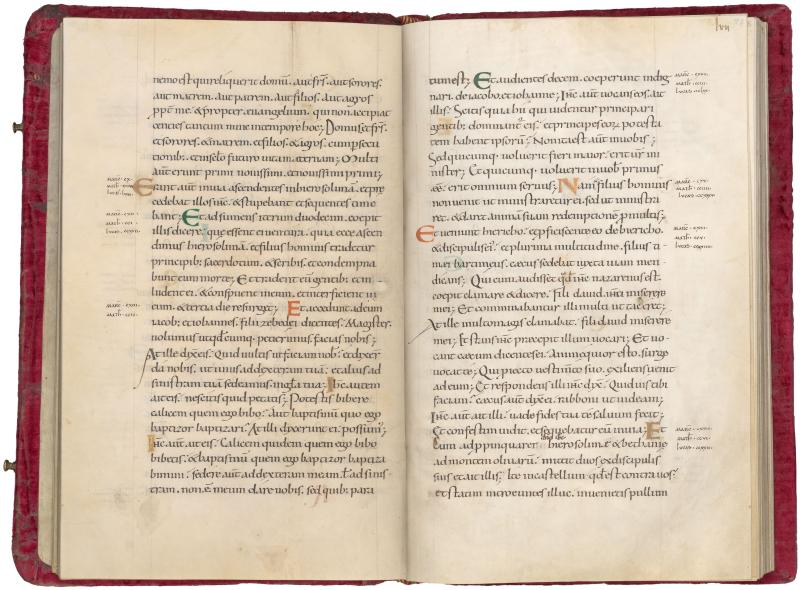 nemo est qui reliquerit domū · aut frs̄ · aut sorores ·
aut matrem · aut patrem · aut filios · aut agros
ppt̄ me · & propter euangelium · qui non accipiat
centies tantum nunc in tempore hoc ; Domus et frs̄ ·
et sorores · & matrem · et filios · & agros · cum persecu
tionib ; et in sclo futuro uitam aeternam ; Multi
aut̄ erunt primi nouissimi · et nouissimi primi ;
Erant aut̄ in uia ascendentes in hierosolima · et pre
cedebat illos ihc̄ · & stupebant et sequentes time
bant ; Et adsumens iterum duodecim · coepit
illis dicere · que essent ei uentura · quia ecce ascen
dimus hierosolimā · et filius hominis tradetur
principib ; sacerdotum · & scribis · et condempna
bunt eum morte ; Et tradent eū gentib ; et in
ludent ei · & conspuent meum · et interficient
eum · & tertia die resurget ; Et accedunt ad eum
iacob ; et iohannes · filii zebedei dicentes · Magister
uolumus ut qđcumq ; petierimus facias nobis ;
At ille dx̄ eis · Quid uultis ut faciam uob ; et dixer̄
da nobis · ut unus ad dexteram tuā · et alius ad
sinistram tuā sedeamus in gła tua ; Ihc̄ autem
ait eis · nescitis quid petatis ; Potestis bibere
calicem quem ego bibo · aut baptismū quo ego
baptizor baptizari · At illi dixerunt ei · possum' ;
Ihc̄ aut̄ ait eis · Calicem quidem quem ego bibo
bibetis · & baptismū quem ego baptizor baptiza
bimini · sedere aut̄ ad dexteram meam ł ad sinis
tram · non ē meum dare uobis · sed quib ; para
lvii
tum est ; Et audientes decem · coeperunt indig
nari · de iacobo et iohanne ; Ihc̄ aut̄ uocans eos · ait
illis · Scitis quia hii qui uidentur principari
gentib ; dominant' eis · et principes eorum potesta
tem habent ipsorū ; Non ita est aut̄ in uobis ;
Sed quicumq ; uoluerit fieri maior · erit ur̄ mi
nister ; Et quicumq ; uoluerit in uob̄ primus
eē · erit omnium seruus ; Nam filius hominis
non uenit ut ministraretur ei · sed ut ministra
ret · & daret animā suam redemptionē p multis ;
Et ueniunt hiericho · et pficiscente eo de hiericho ·
& discipulis ei' · et plurima multitudine · filius ti
mei bartimeus · caecus sedebat iuxta uiam men
dicans ; Qui cum audisset qđ ihc̄ nazarenus est ·
coepit clamare & dicere · Fili dauid miserere
mei ; Et comminabantur illi multi ut taceret ;
At ille multo magis clamabat · fili dauid miserere
mei ; Et stans ihc̄ praecepit illum uocari ; Et uo
cant caecum dicentes ei · Animequior esto · surge
uocat te ; Qui proiecto uestimto suo · exiliens uenit
ad eum ; Et respondens illi ihc̄ dx̄ · Quid uis tibi
faciam · caecus aut̄ dx̄ ei · rabboni ut uideam ;
Ihc̄ aut̄ ait illi · uade fides tua te saluum fecit ;
Et confestim uidit · et sequebatur eū in uia ; Et
cum adppinquaret hierosolimae & bethanie
ad montem oliuarū · mittit duos ex discipulis
suis et ait illis · Ite in castellum qđ est contra uos ·
et statim introeuntes illuc · inuenietis pullum